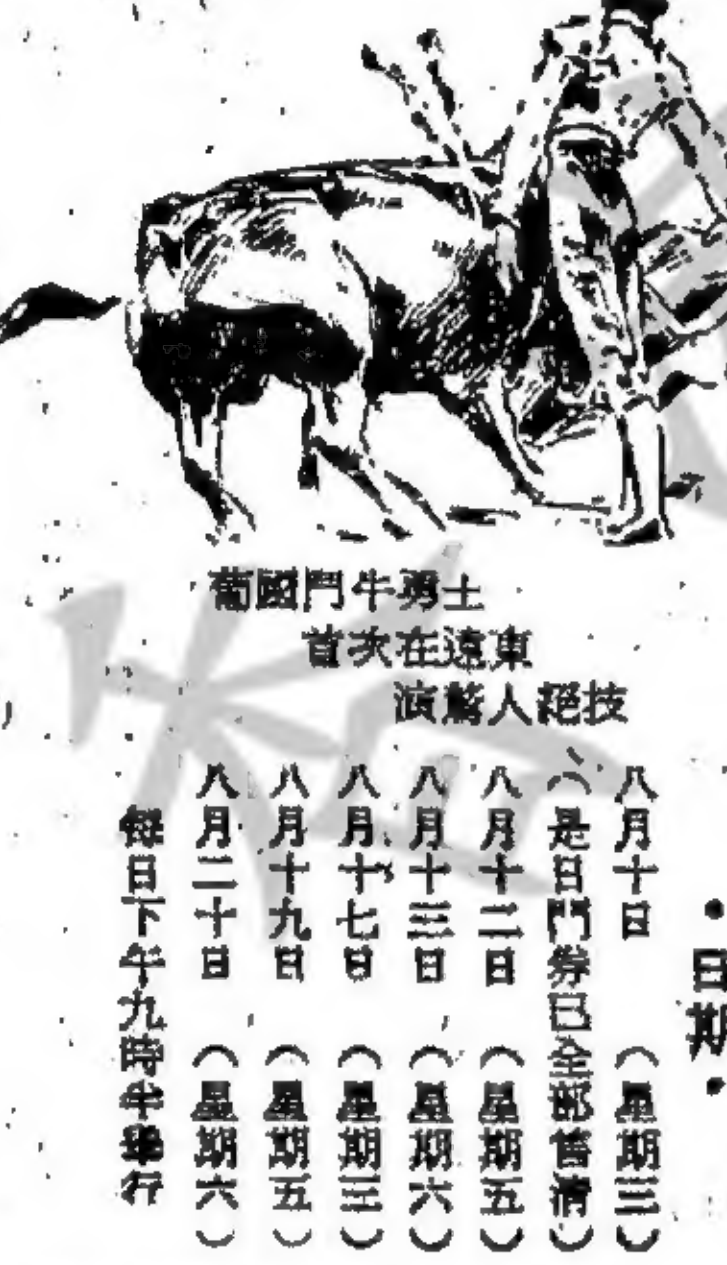 葡國鬥牛勇士
首次在遠東
演驚人絕技
·日期·
八月十日（星期三）
（是日門券已全部售清）
八月十二日（星期五）
八月十三日（星期六）
八月十七日（星期三）
八月十九日（星期五）
八月二十日（星期六）
每日下午九時半舉行